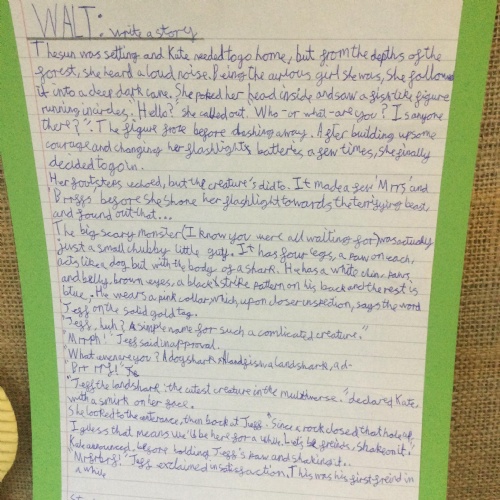 WALT: write a story
The sun was setting and Kate needed to go home, but from the depths of the
forest, she heard a loud noise. Being the curious girl she was, she followed
it unto a deep dark cave. She poked her head inside and saw a fishlike figure
running in circles. "Hello?" she called out. "Who-or what-are you? Is anyone
there?". The figure froze before dashing away. After building up some
courage and changing her flashlights batteries a few times, she finally
decided to go in.
Her footsteps echoed, but the creature's did to. It made a few 'Mrrs' and
'Brrgs' before she shone her flashlight towards the terrifying beast,
and found out that...
The big scary monster (I know you were all waiting for) was actually
just a small chubby little guy. It has four legs, a paw on each,
acts like a dog but with the body of a shark. He has a white chin, paws,
and belly, brown eyes, a black stripe pattern on his back and the rest is
blue. He wears a pink collar which, upon closer inspection, says the word
Jeff on the solid gold tag.
"Jeff, huh? A simple name for such a complicated creature."
"Mrrph!" Jeff said in approval.
"What are you? A dog shark? A land fish? A landshark, a d-
"Brr rrf!"
"Jeff the landshark: the cutest creature in the multiverse." declared Kate,
with a smirk on her face.
She looked to the enterance, then back at Jeff. "Since a rock closed that hole up
I guess that means we'll be here for a while. Let's be freinds, shake on it."
Kate announced, before holding Jeff's paw and shaking it..
"Mrfrrf!" Jeff exclaimed in satisfaction. This was his first freind in
a while